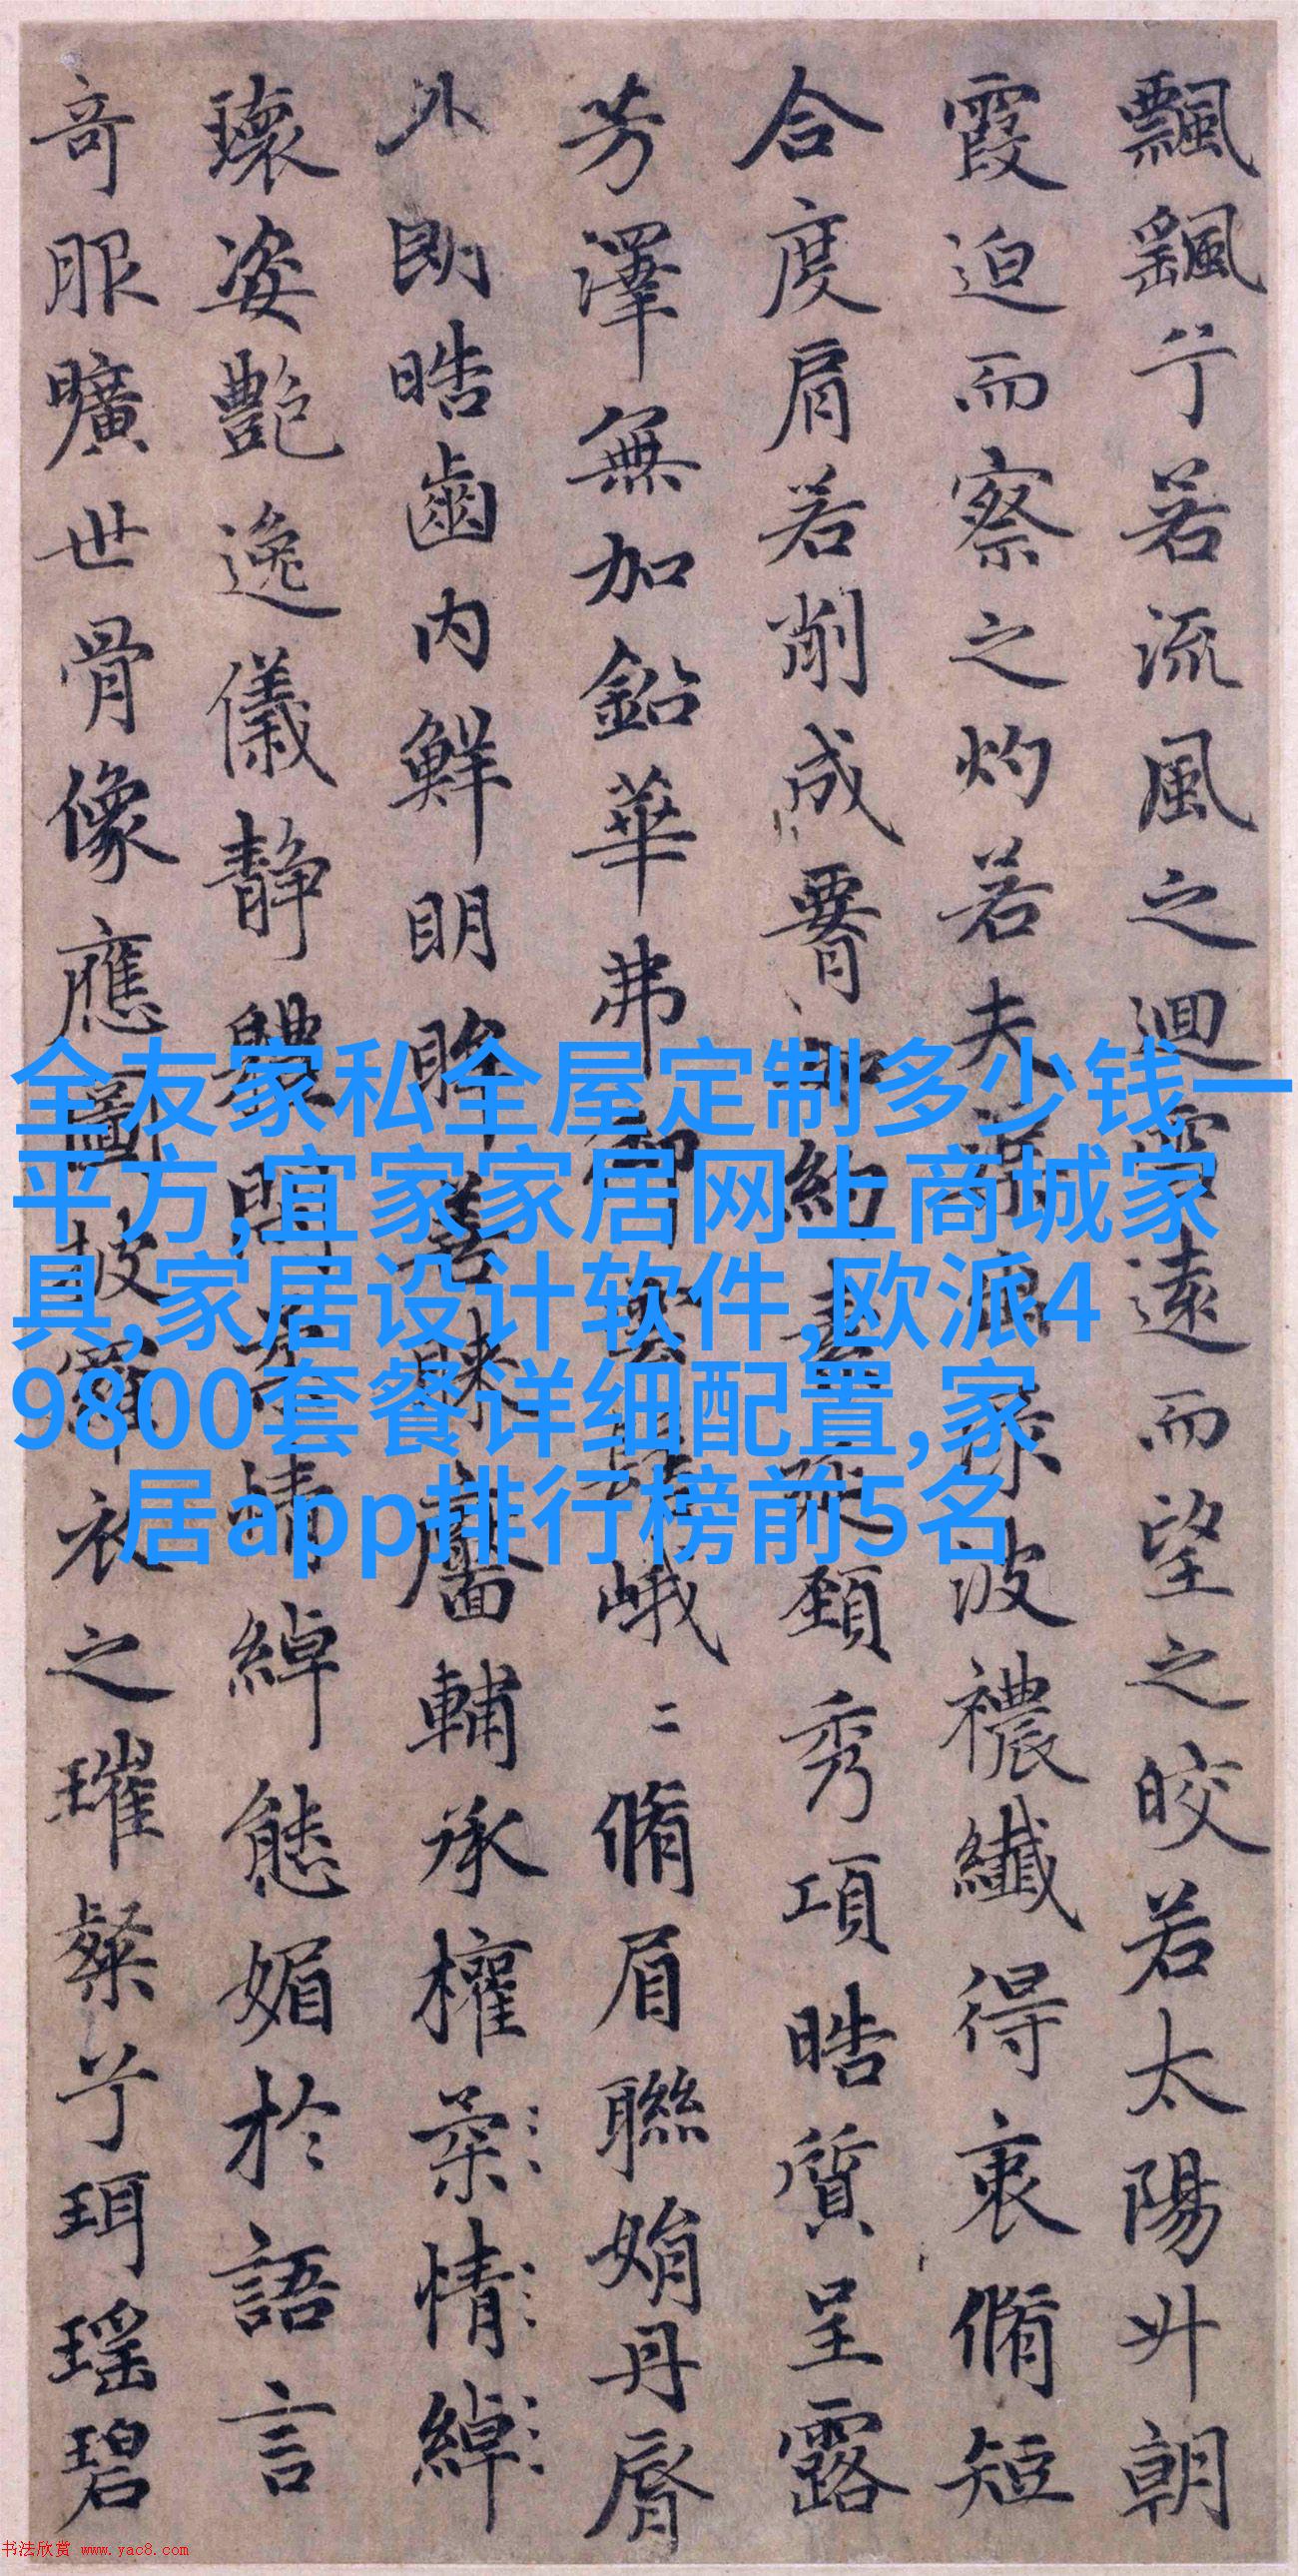 飄飖兮若流風之迴雪遠而望之皎若太陽升朝
霞迫而察之灼若夫渠出渌波襛纖得衷脩短
合度肩若削成署如約素延頸秀項皓質呈露
芳澤無加鉛華弗御雲髻峨二脩眉聯娟丹脣
外朗皓齒內鮮明眸善睞靨輔承權柔情綽
瓌姿艷逸儀靜體閑柔情綽態媚於語言
奇服曠世骨像應圖披羅衣之璀粲兮珥瑶碧
全友家私全屋定制多少钱一
平方,宜家家居网上商城家
具,家居设计软件,欧派4
9800套餐详细配置,家
居app排行榜前5名
书法欣赏 www.yac8.com